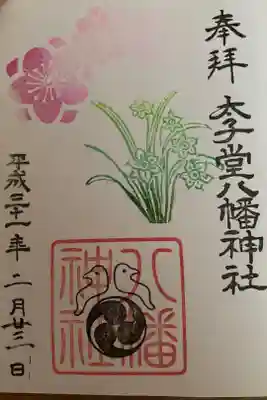 奉拝
太子堂八幡神社
八幡神社
平成三十一年二月廿三日